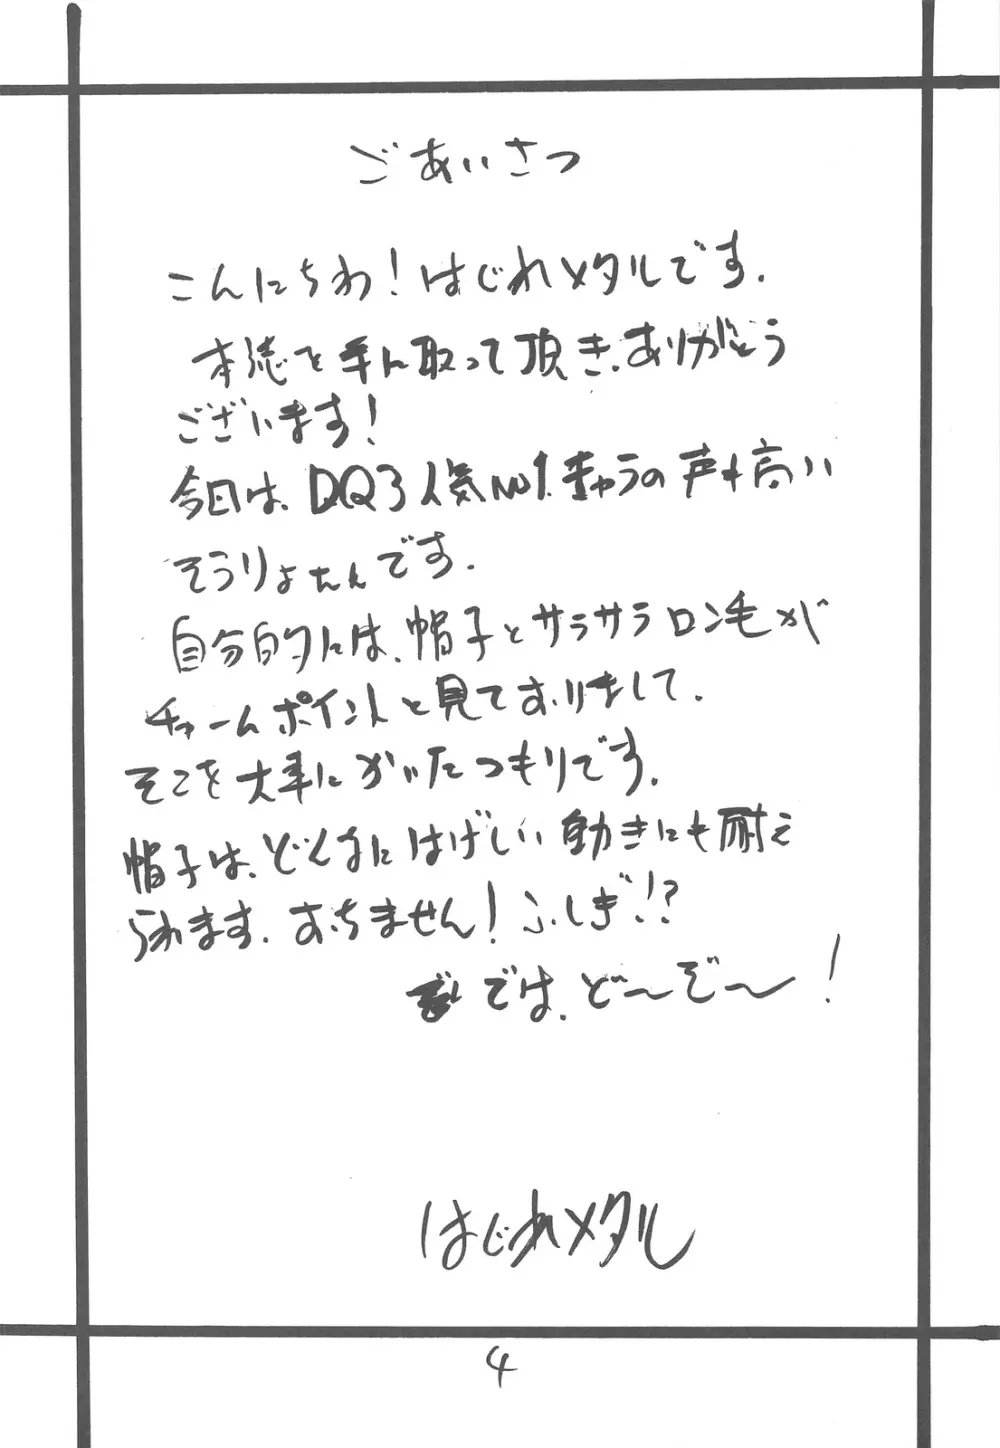 ごあいさつ
こんにちわ!はじれメタルです.
本誌を手に取って頂き、ありがとう
ございます!
今日は、DQ3人気No1.ぎゃうの声も高い
そうりょたんです.
自分的には、帽子とサラサラロン毛が
チャームポイントと見ておりまして.
そこを大事にかいたつもりです.
帽子は、どんなにはげしい動きにも耐え
られます.おちません!ふしぎ!?
では、ど〜ぞ〜!
はじれメタル
4